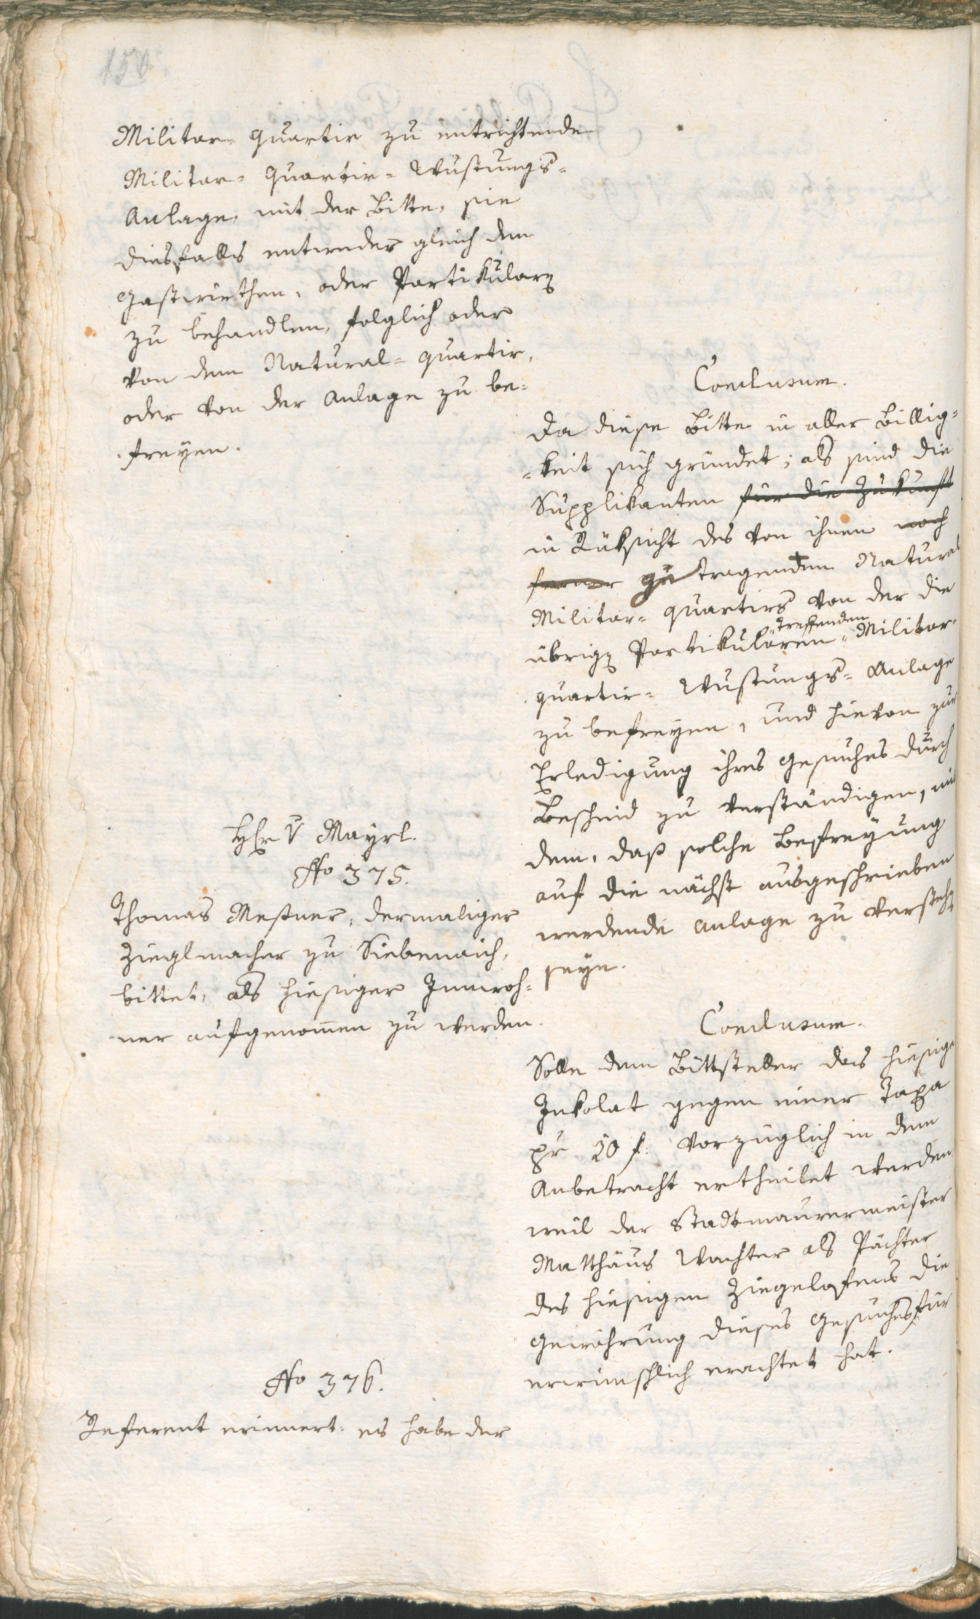 150.
Militar-quartir zu entrichtende
Militar-Quartir-Wustungs-
Anlage, mit der Bitte, sie
diesfalls entweder gleich den
Gastwirthen, oder Partikularn
zu behandlen, folglich oder
von dem Natural-quartir,
oder von der Anlage zu be-
freyen.
Conclusum.
Da diese Bitte in aller Billig-
-keit sich gründet; als sind die
Supplikanten für die Zukunft
in Rüksicht des von ihnen noch
ferner zu tragenden Natural
Militar-quartirs von der die
übrign Partikularen treffenden Militar-
quartir-Wustungs-Anlage
zu befreyen, und hievon zur
Erledigung ihres Gesuches durch
Bescheid zu verständigen, mit
dem, daß solche Befreyung
auf die nächst ausgeschrieben
werdende Anlage zu verstehn
seye.
Hr V Mayrl.
No 375.
Thomas Meßner, dermaliger
Zieglmacher zu Siebenaich,
bittet, als hiesiger Innwoh-
ner aufgenommen zu werden.
Conclusum.
Solle dem Bittsteller das hiesige
Inkolat gegen einer Taxa
pr 20 f. vorzüglich in dem
Anbetracht ertheilet werden
weil der Stadtmaurermeister
Matthäus Wachter als Pächter
des hiesigen Ziegelofens die
Gewährung dieses Gesuches für
erwünschlich erachtet hat.
No 376.
Referent erinnert: es habe der